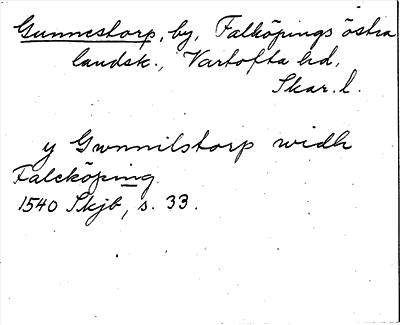 Gunnestorp, by, Falköpings östra
landsk., Vartofta hd,
Skar. l.
y Gwnnilstorp widh
Falcköping
1540 Skjb, s. 33.